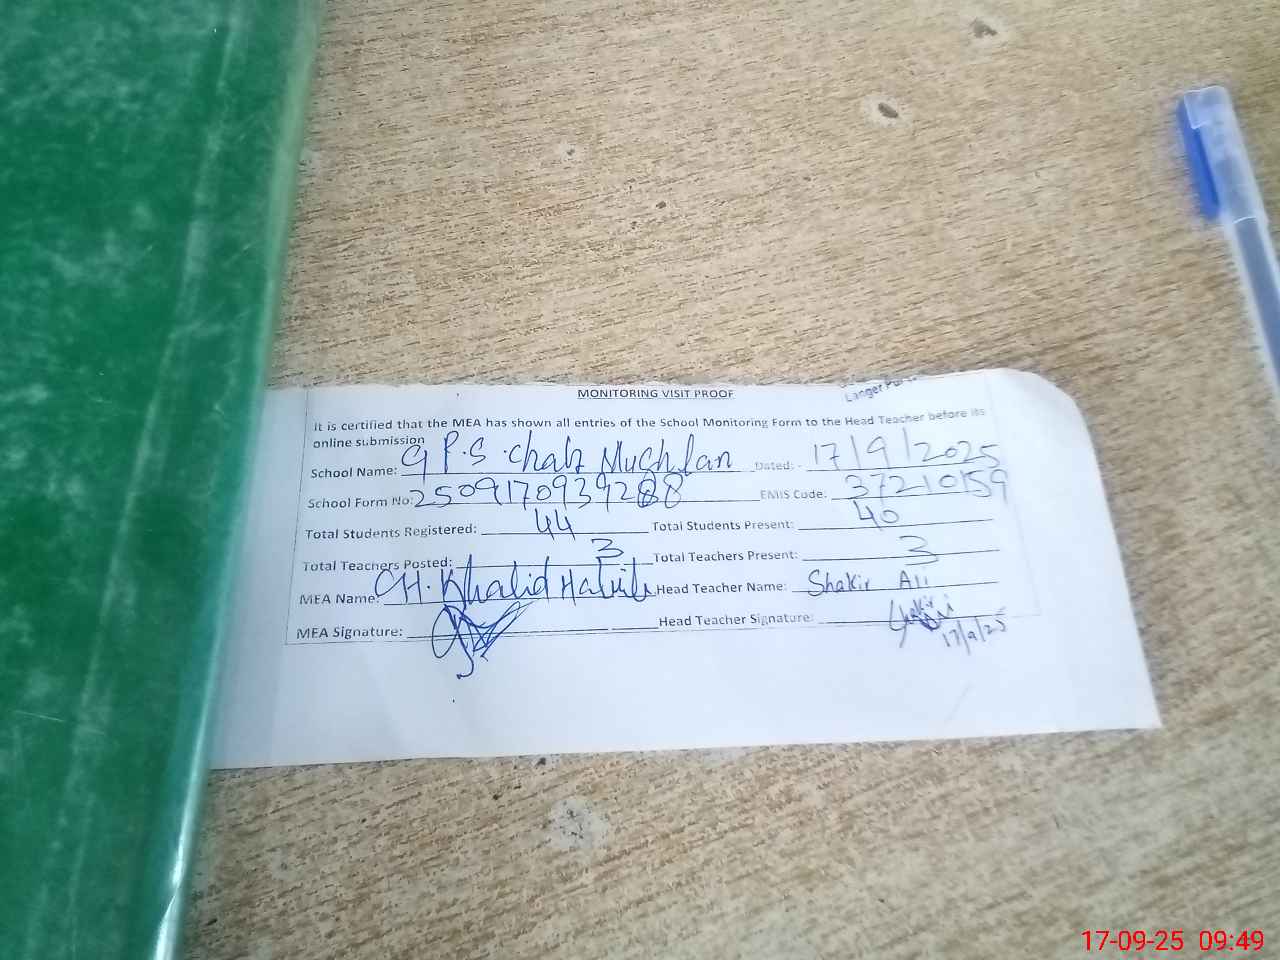 Langer Pur
MONITORING VISIT PROOF
It is certified that the MEA has shown all entries of the School Monitoring Form to the Head Teacher before its
online submission
School Name: G P.S. Chak Mughlan Dated: - 17/9/2025
School Form No: 250917093928 EMIS Code. 37210159
Total Students Registered: 44 Total Students Present: 40
Total Teachers Posted: 3 Total Teachers Present: 3
MEA Name: CH. Khalid Head Teacher Name: Shakir Ali
MEA Signature: Head Teacher Signature:
17/9/25
17-09-25 09:49